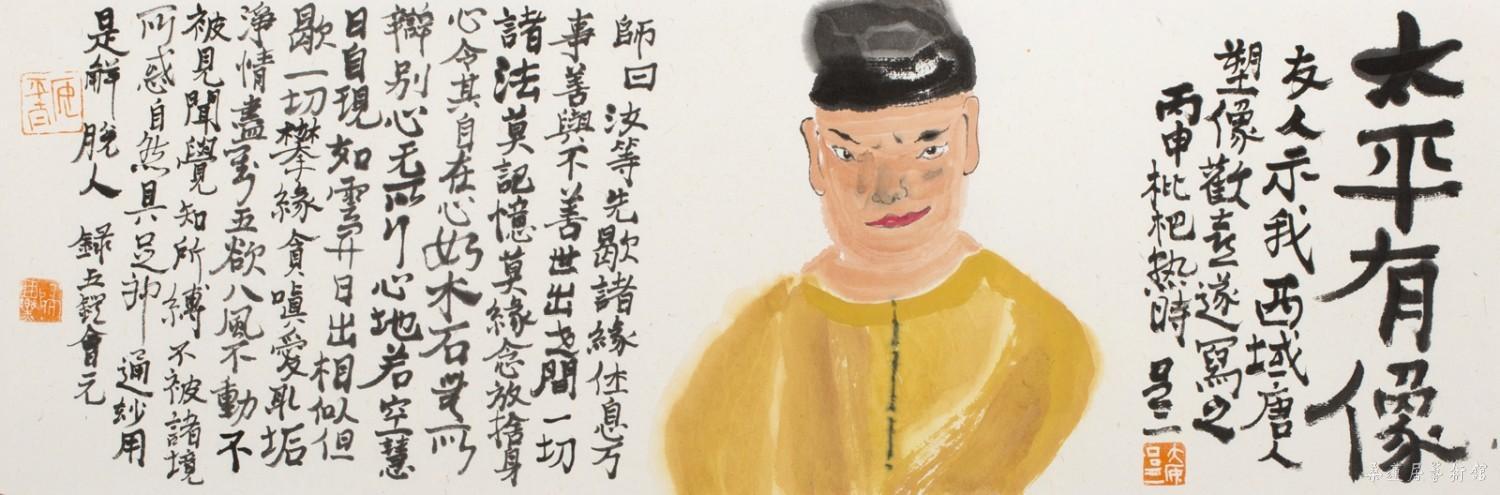 太平有像
友人示我西域唐人
塑像歡喜遂寫之
丙申枇杷熱時 吕三
師曰汝等先歇諸緣休息万
事善與不善世出世間一切
諸法莫記憶莫緣念放捨身
心令其自在心如木石無所
辯别心无所行心地若空慧
日自現如雲開日出相似但
歇一切攀緣貪嗔愛取垢
淨情盡對五欲八風不動不
被見聞覺知所縛不被諸境
所惑自然具足神通妙用
是解脱人 録五燈會元
大匠
吕三